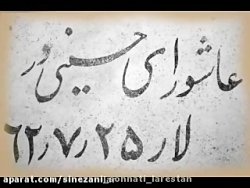 عاشورای حسینی در
لار ۶۲٫۷٫۲۵
aparat.com/sinezani_sonnati_larestan